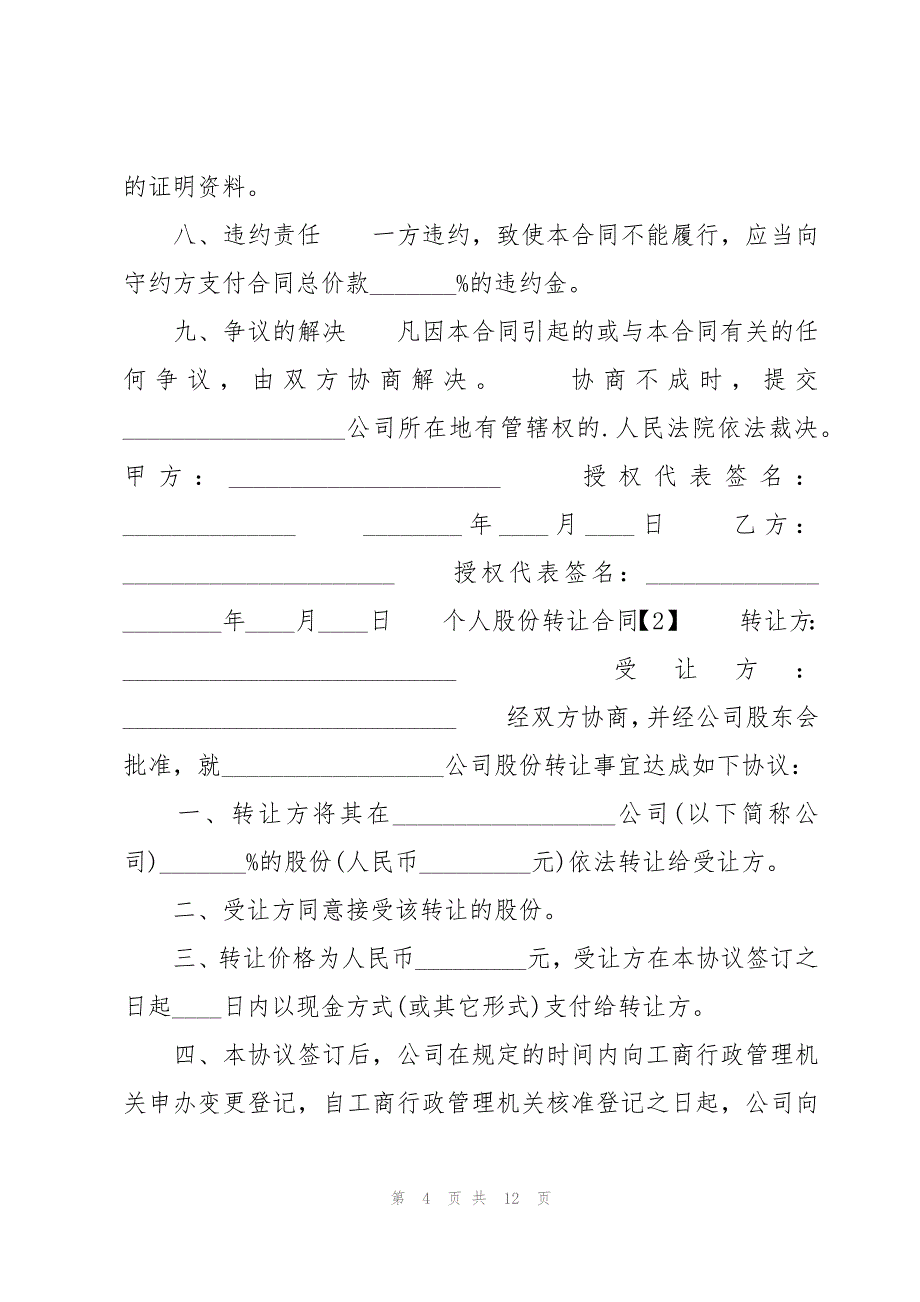 的证明资料。
八、违约责任　　一方违约，致使本合同不能履行，应当向
守约方支付合同总价款_______%的违约金。
九、争议的解决　　凡因本合同引起的或与本合同有关的任
何争议，由双方协商解决。　　协商不成时，提交
__________________公司所在地有管辖权的.人民法院依法裁决。
甲方：______________________　　授权代表签名：
______________　　________年____月____日　　乙方：
______________________　　授权代表签名：______________
________年____月____日　　个人股份转让合同【2】　　转让方：
___________________________　　受让方：
___________________________　　经双方协商，并经公司股东会
批准，就__________________公司股份转让事宜达成如下协议：
一、转让方将其在__________________公司(以下简称公
司)_______%的股份(人民币_________元)依法转让给受让方。
二、受让方同意接受该转让的股份。
三、转让价格为人民币_________元，受让方在本协议签订之
日起____日内以现金方式(或其它形式)支付给转让方。
四、本协议签订后，公司在规定的时间内向工商行政管理机
关申办变更登记，自工商行政管理机关核准登记之日起，公司向
第 4 页 共 12 页